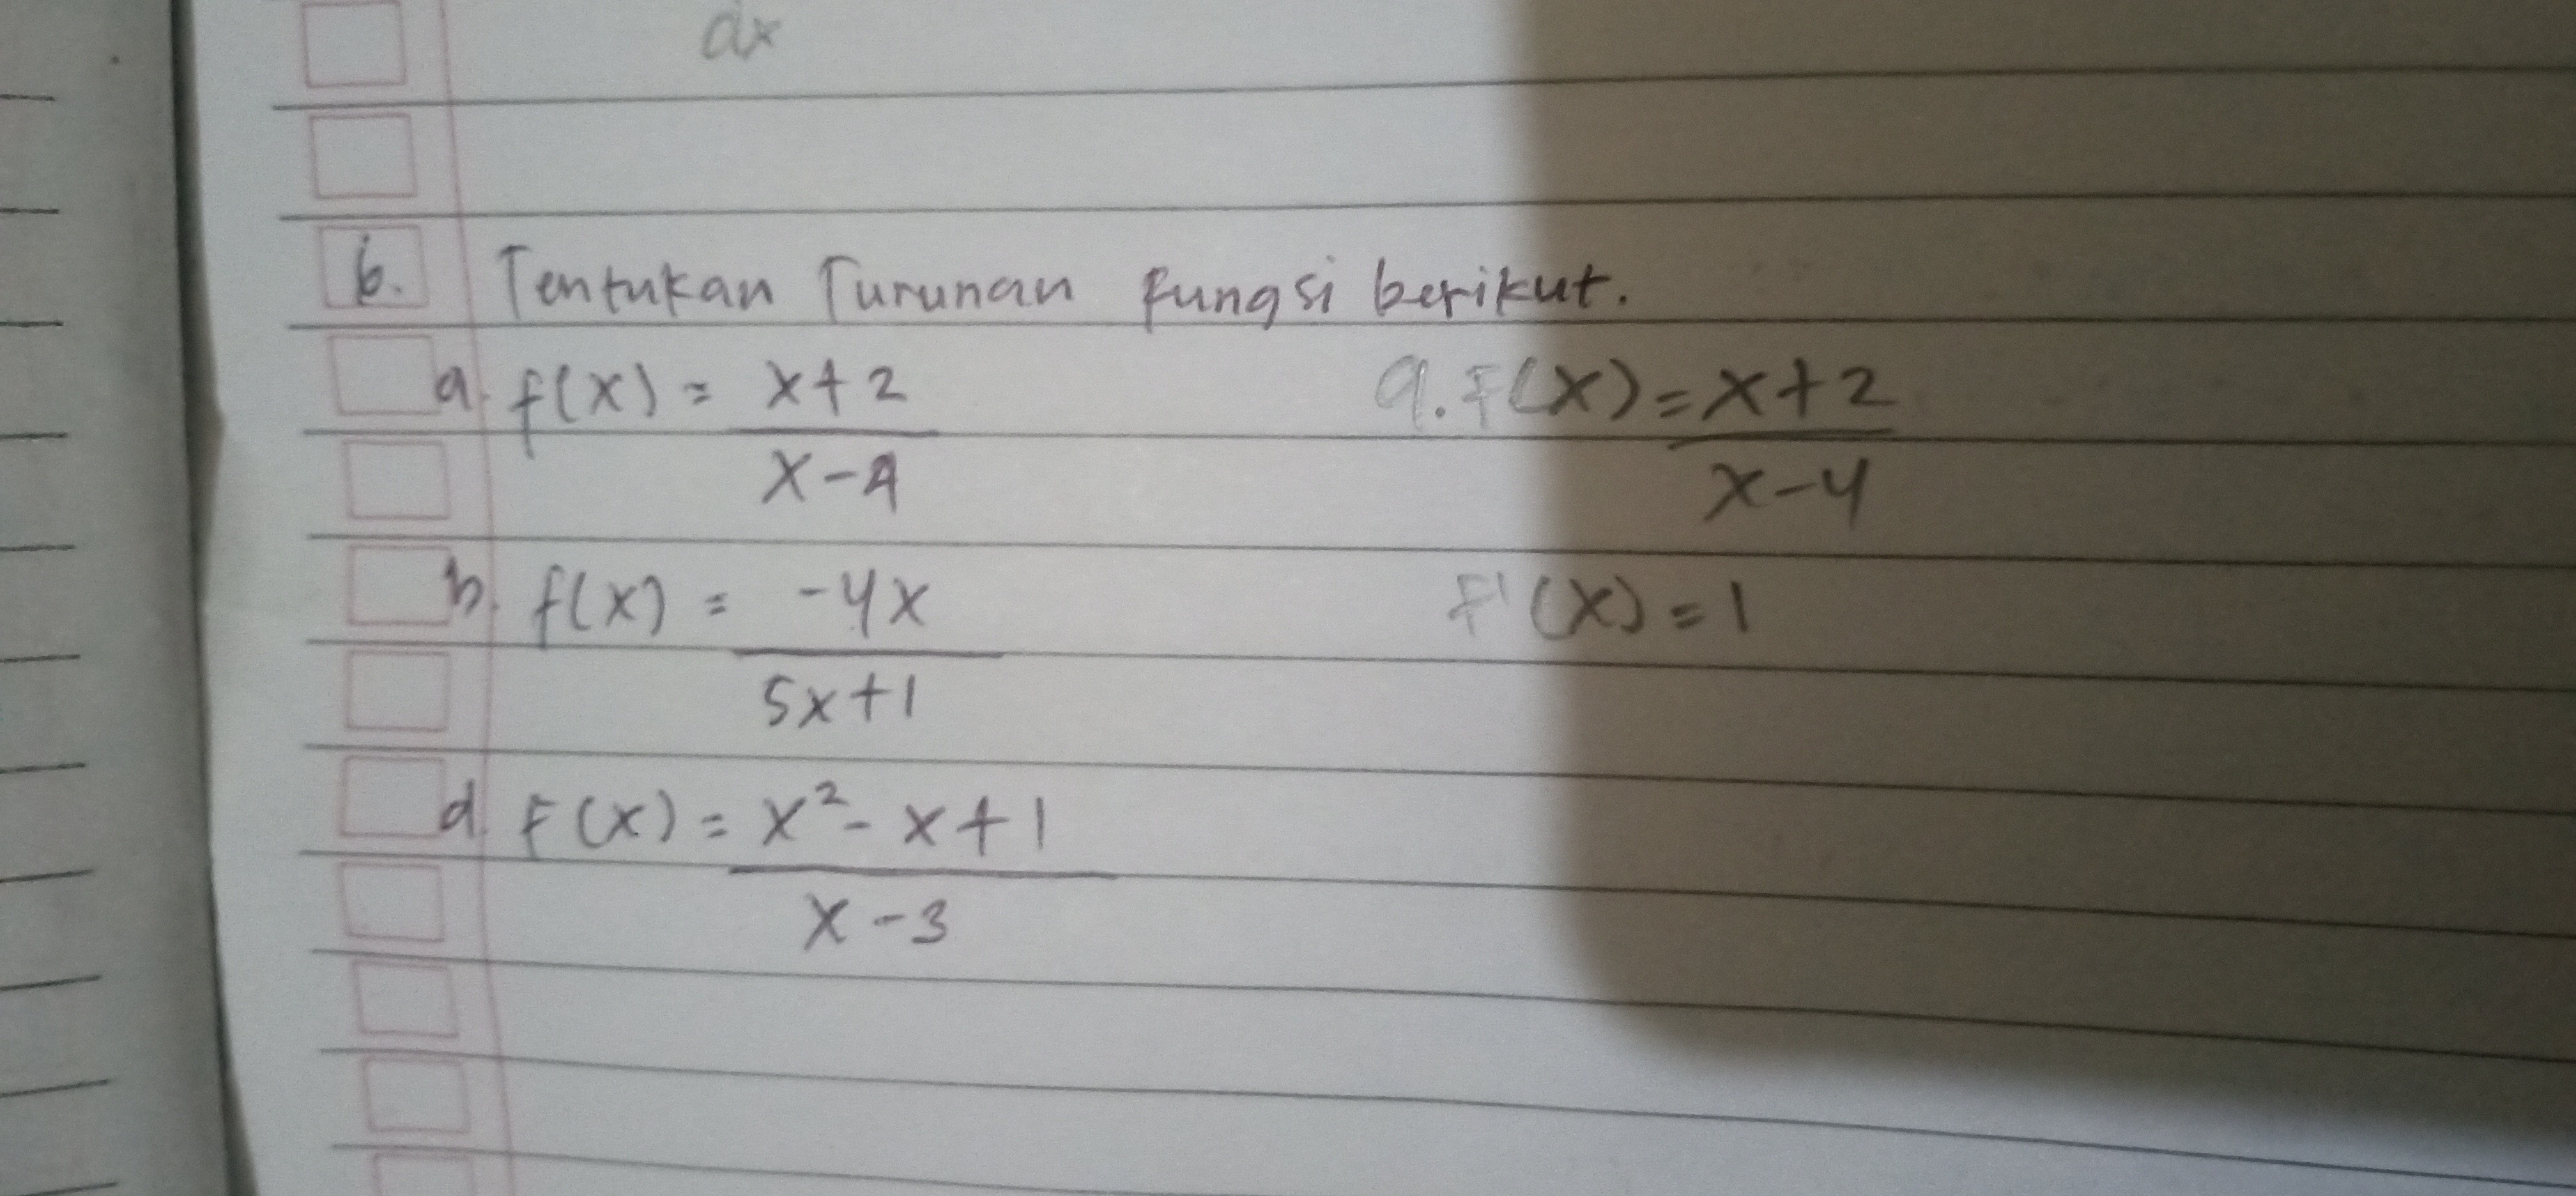 dx
6. Tentukan Turunan fungsi berikut.
a. f(x) = x+2
x-4
b. f(x) = -4x
5x+1
d. F(x) = x² - x + 1
x - 3
a. F(x) = x+2
x-4
F'(x) = 1